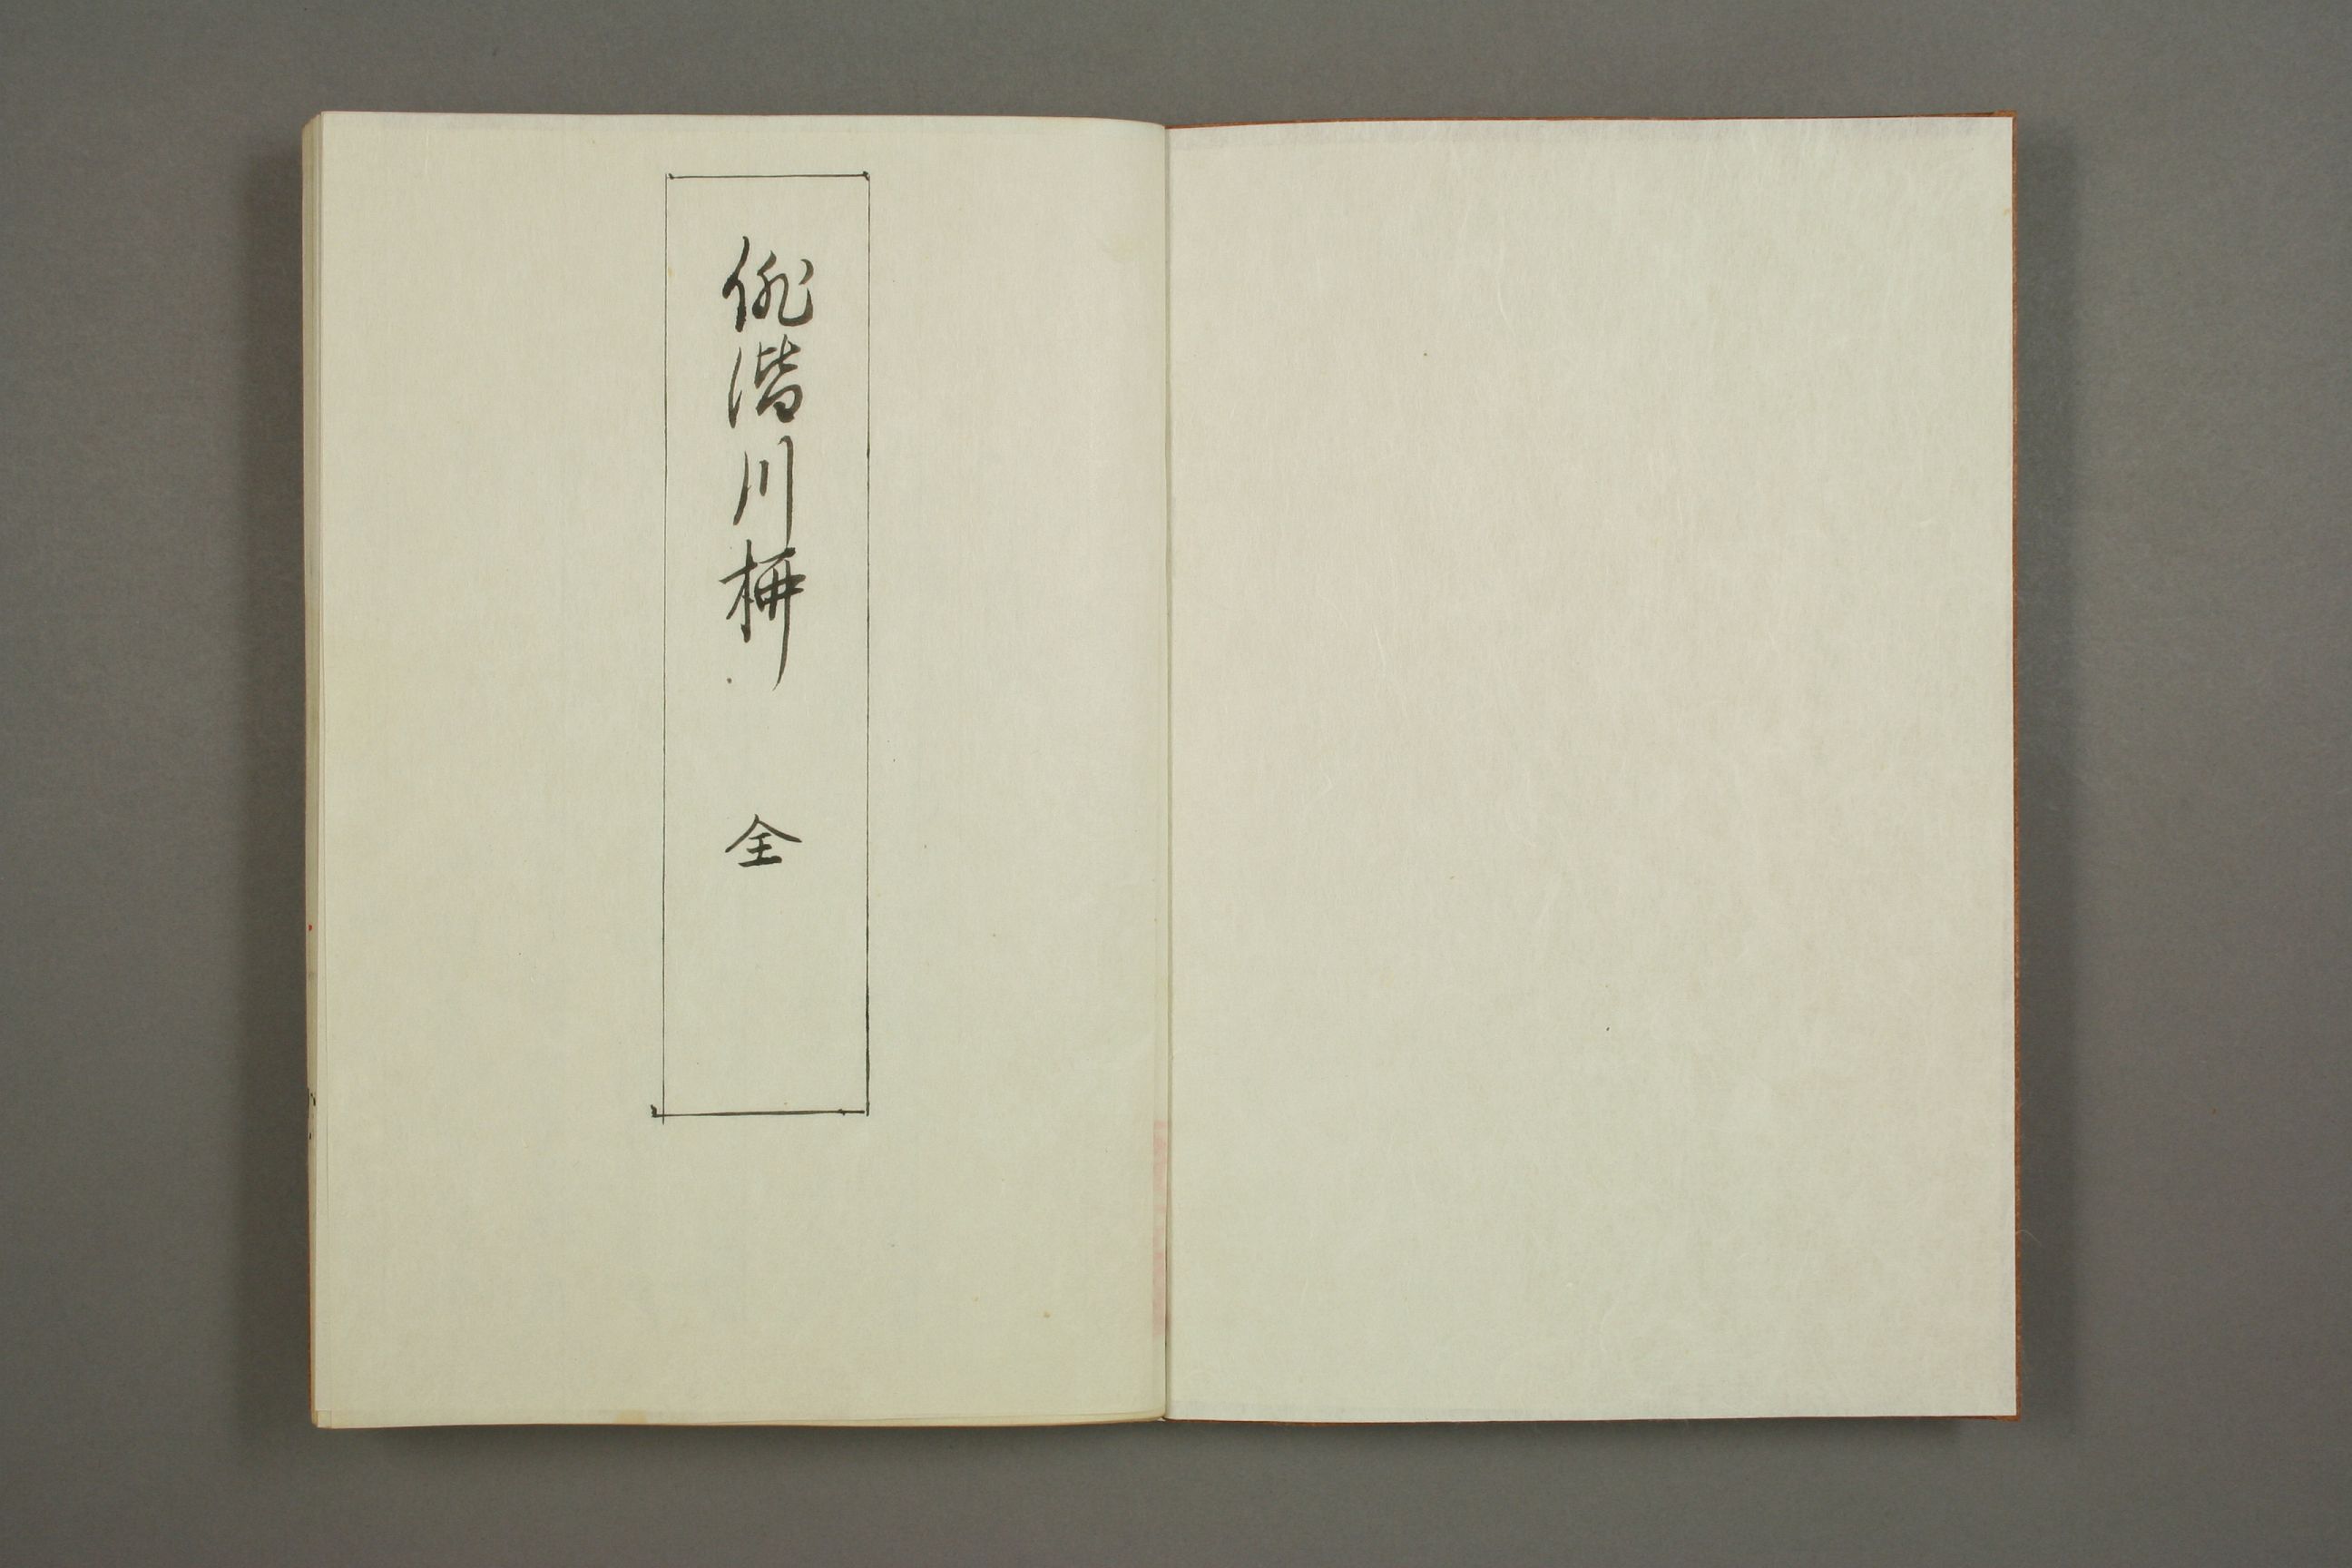 俳諧川柵 全